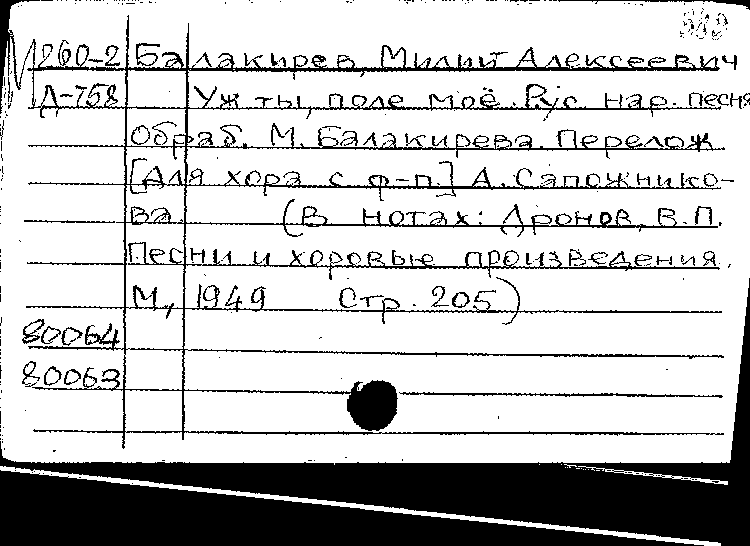 М260-2 Балакирев, Милий Алексеевич
Д-758 Уж ты, поле моё. Рус. нар. песня
Обраб. М. Балакирева. Перелож.
[Для хора с ф-п.] А. Сапожнико-
ва. (В нотах: Дронов, В.П.
Песни и хоровые произведения.
М., 1949 Стр. 205)
80064
80063